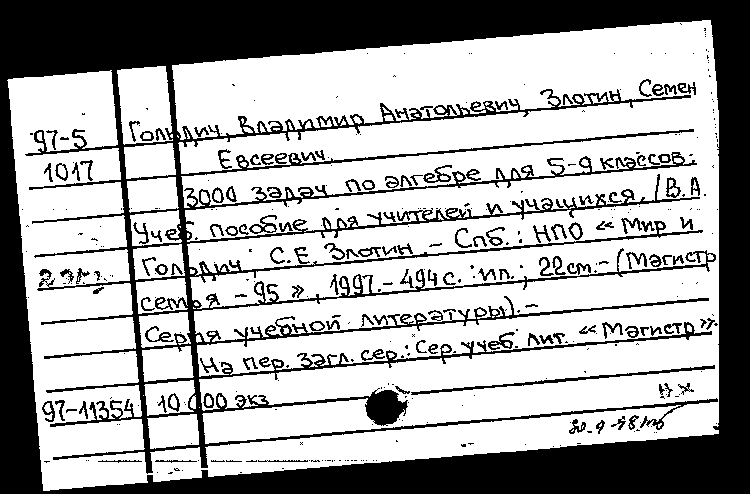 97-5 Гольдич, Владимир Анатольевич, Злотин, Семен
1017 Евсеевич.
3000 задач по алгебре для 5-9 классов:
Учеб. пособие для учителей и учащихся. /В.А.
2 экз. Гольдич, С.Е. Злотин. - Спб.: НПО « Мир и
семья - 95 », 1997. - 494 с.: ил.; 22 см. - (Магистр
Серия учебной литературы). -
На пер. загл. сер.: Сер. учеб. лит. « Магистр ».
97-11354 10 000 экз